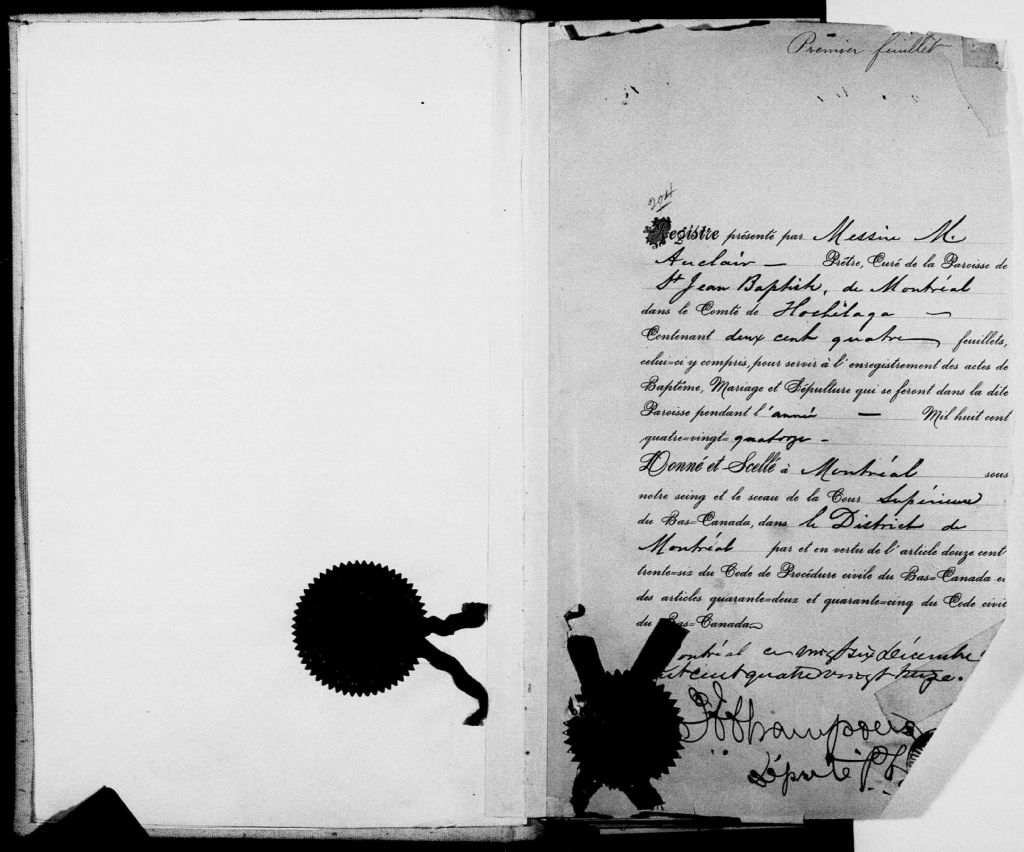 Premier feuillet
204
Registre présenté par Messire M.
Auclair — Prêtre, Curé de la Paroisse de
St Jean Baptiste, de Montréal
dans le Comté de Hochelaga —
Contenant deux cent quatre feuillets,
celui=ci y compris, pour servir à l'enregistrement des actes de
Baptême, Mariage et Sépulture qui se feront dans la dite
Paroisse pendant l'année — Mil huit cent
quatre=vingt=quatorze -
Donné et Scellé à Montréal sous
notre seing et le sceau de la Cour Supérieure
du Bas=Canada, dans le District de
Montréal par et en vertu de l'article douze cent
trente=six du Code de Procédure civile du Bas=Canada et
des articles quarante=deux et quarante=cinq du Code civil
du Bas=Canada
ontréal ce vingt six décembre
cent quatre vingt treize.
Député P.